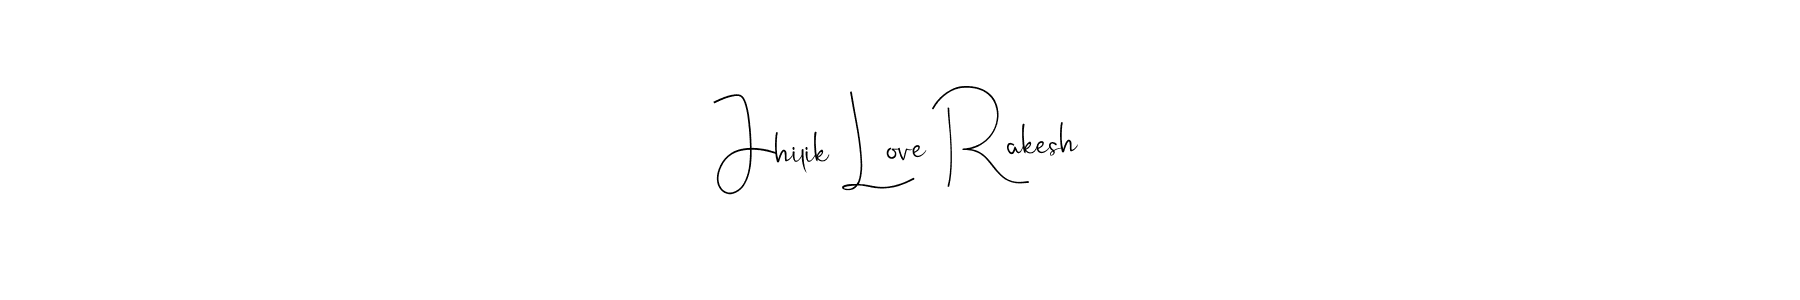 Jhilik Love Rakesh